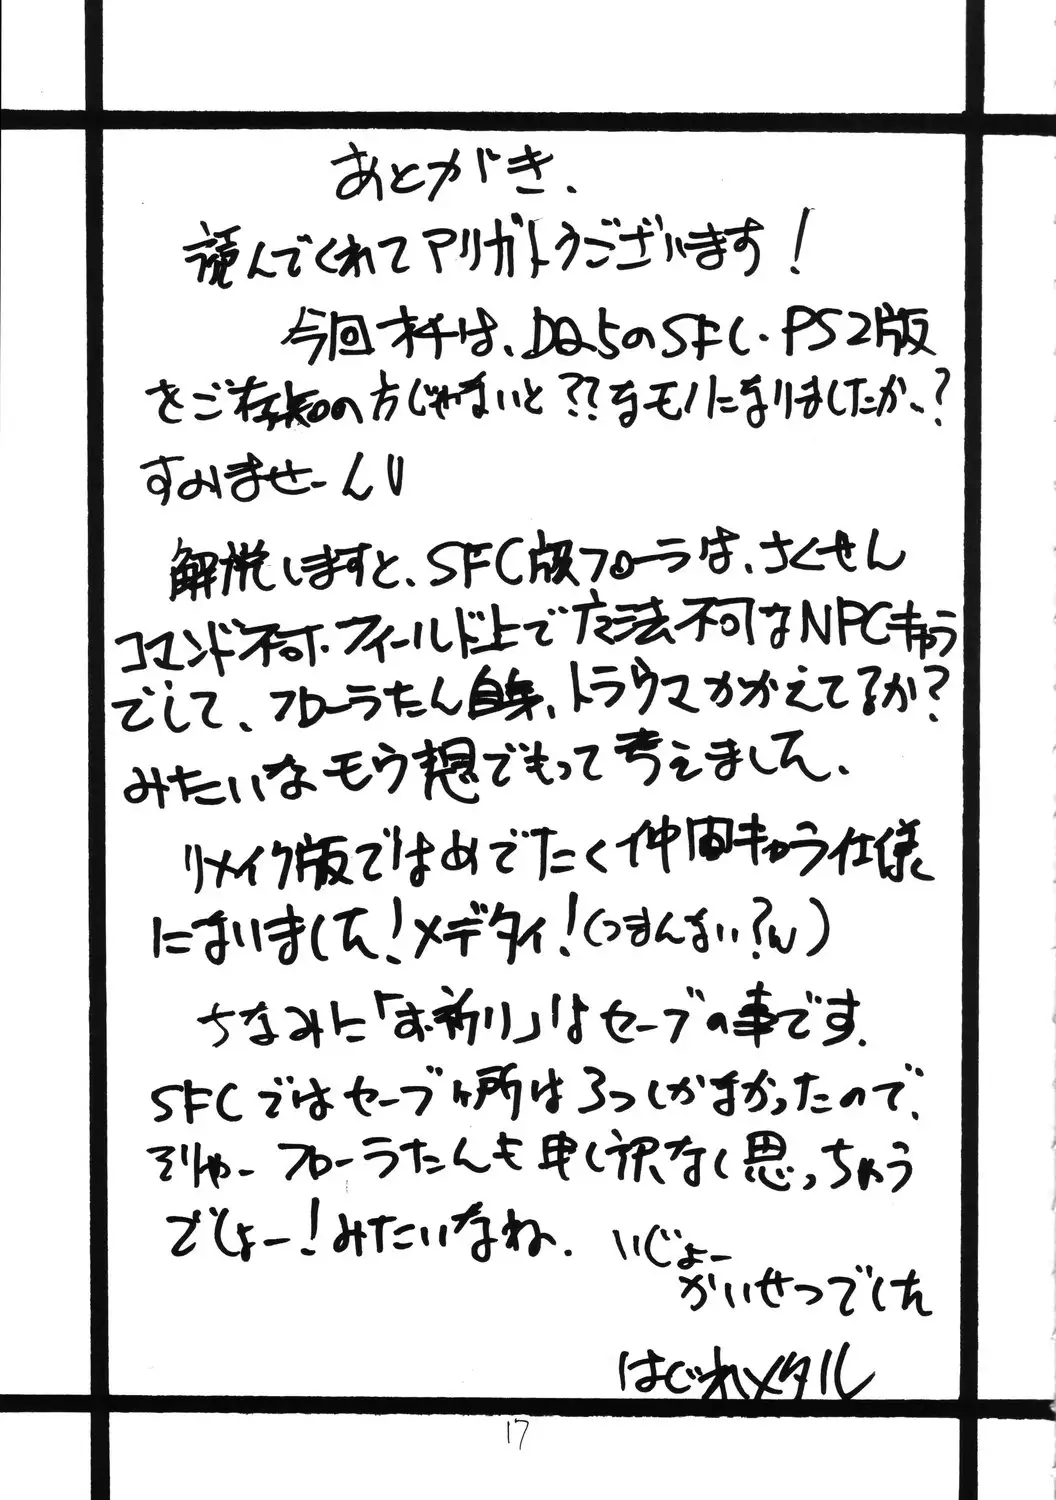 あとがき、
読んでくれてアリガトうございます!
今回オチは、DQ5のSFC・PS2版
をご存知の方じゃないと??なモノになりましたか、?
すみませーんU
解説しますと、SFC版フローラは、さくせん
コマンド不可、フィールド上で魔法不可なNPCキャラ
でして、フローラたん自身、トラウマかかえてるか?
みたいなモウ想でもって考えました、
リメイク版ではめでたく仲間キャラ仕様
になりました!メデタイ!(つまんない?w)
ちなみに「お祈り」はセーブの事です.
SFCではセーブヶ所は3つしかなかったので、
そりゃーフローラたんも申し訳なく思っちゃう
でしょー!みたいなね.
いじょー
かいせつでした
はぐれメタル
17